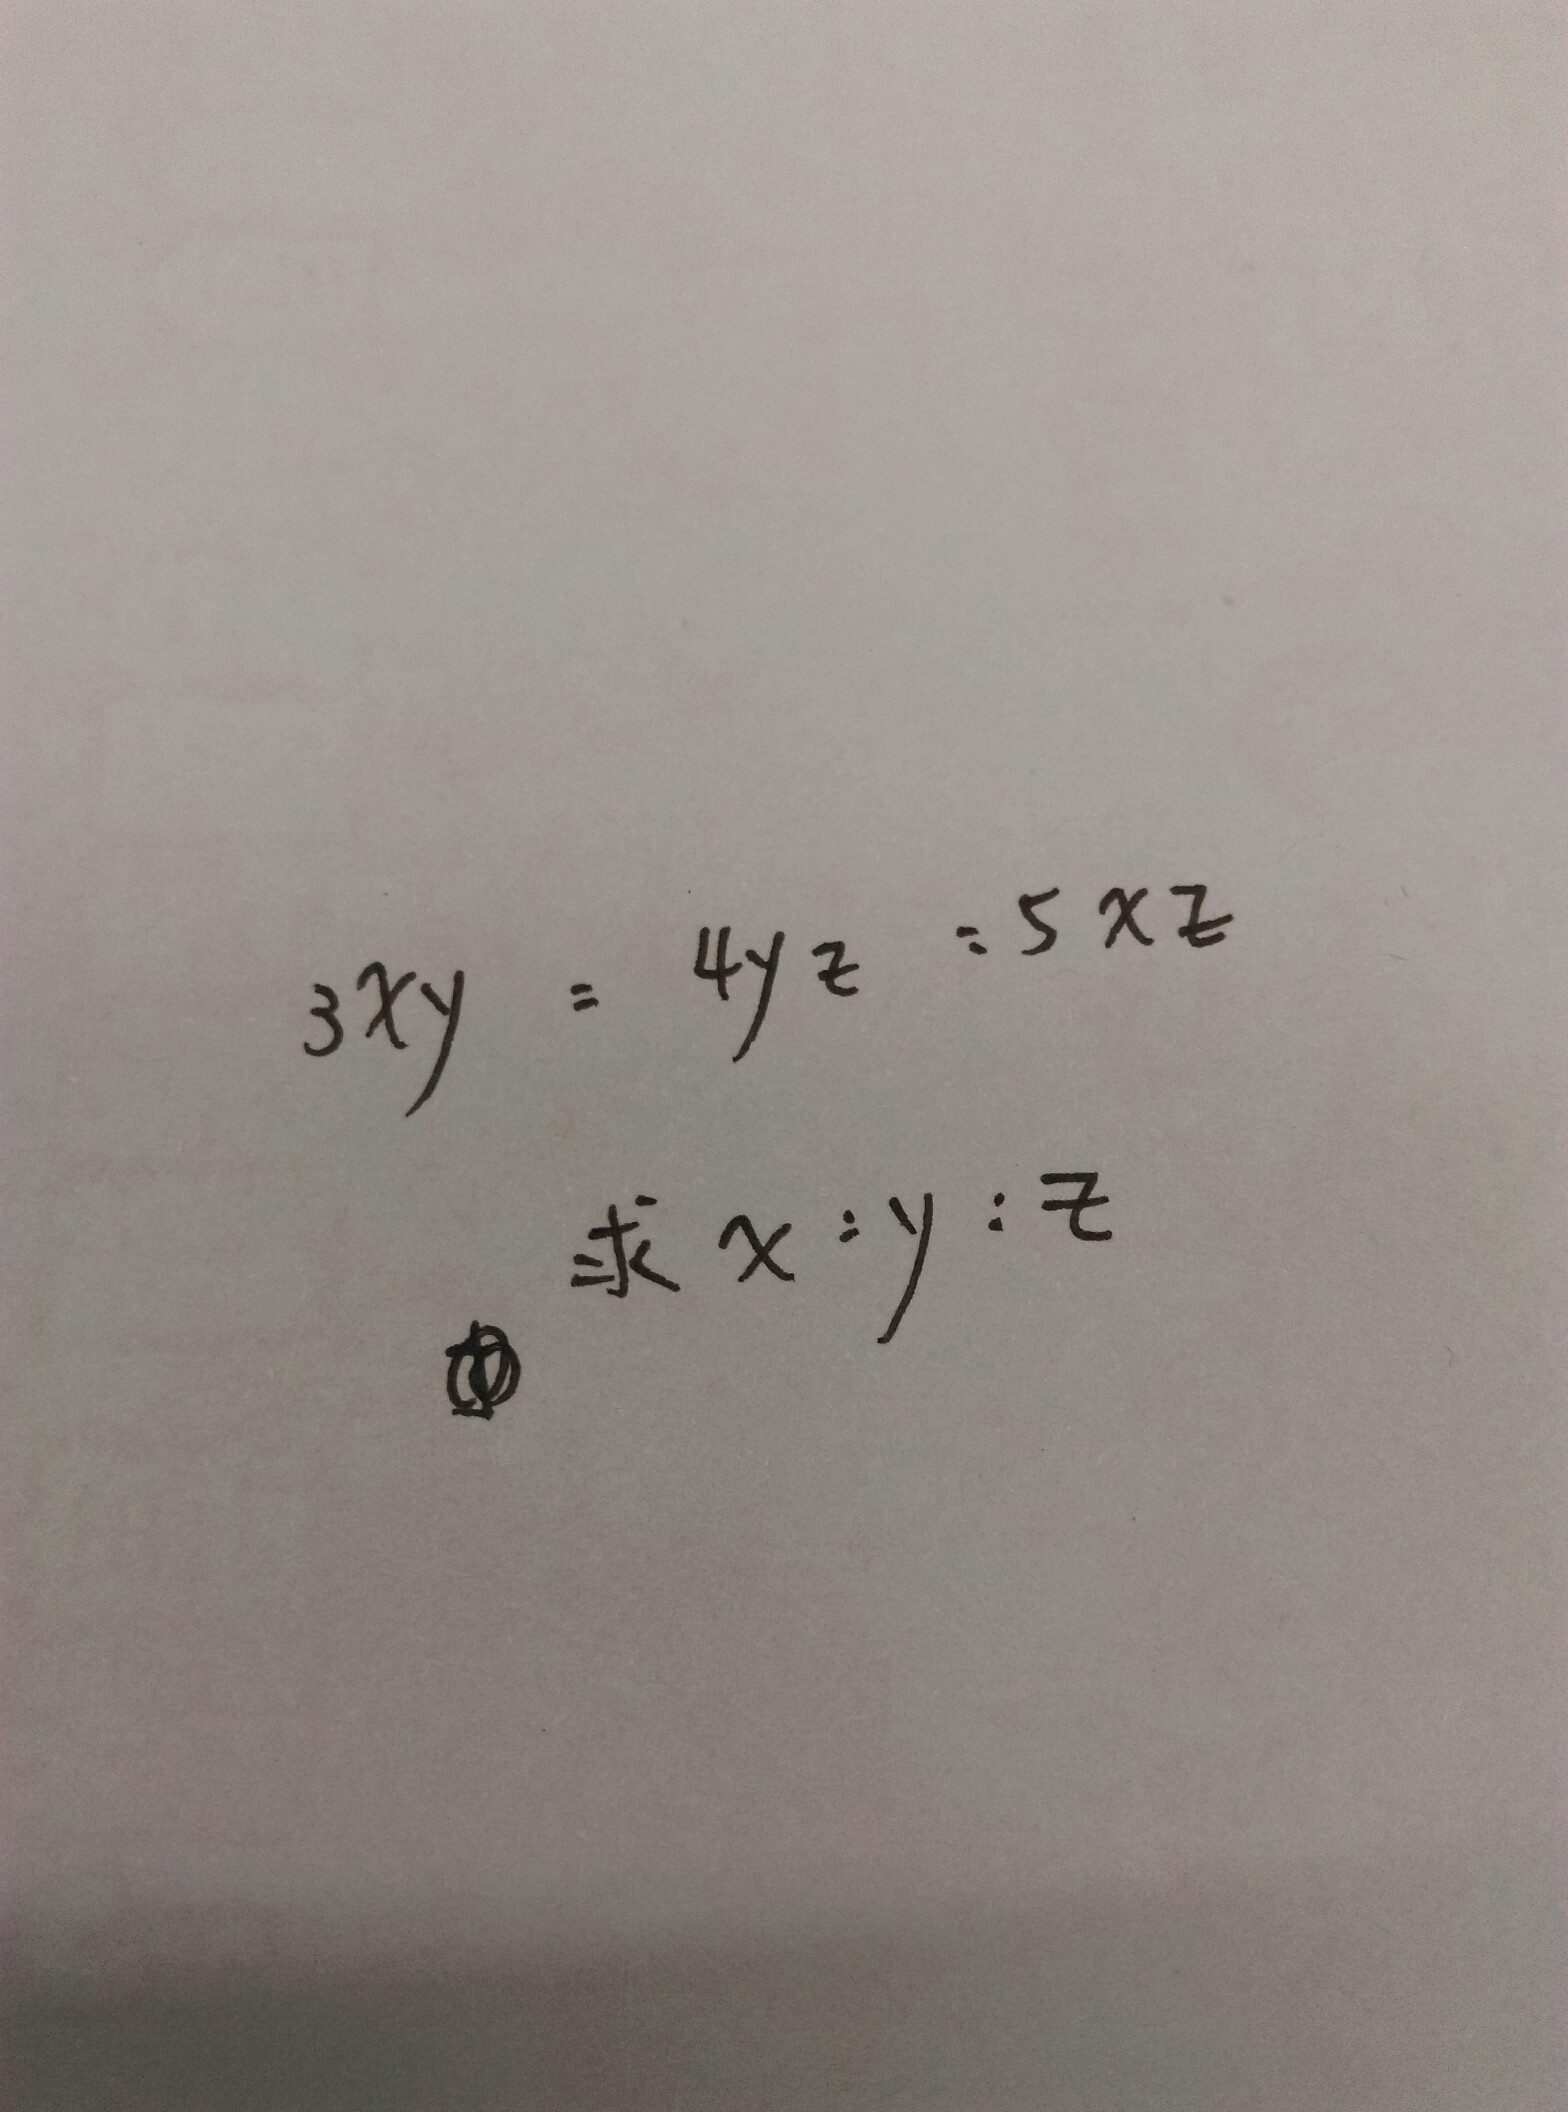 3xy = 4yz = 5xz
求 x : y : z